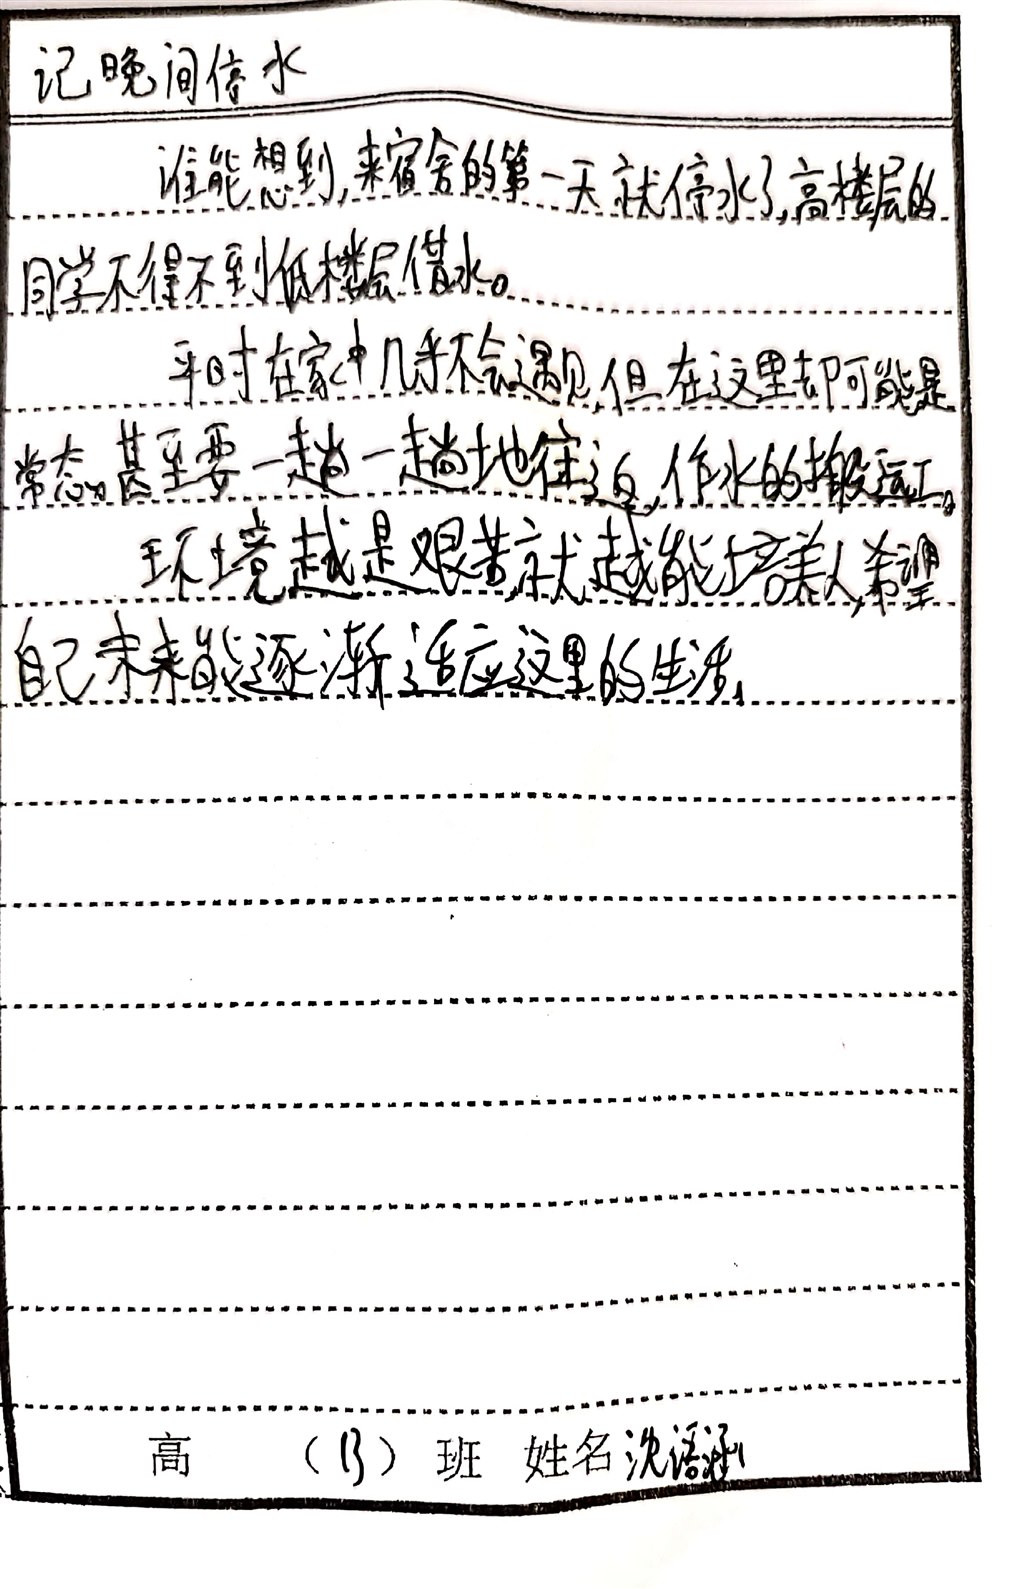 记晚间停水
谁能想到,来宿舍的第一天就停水了,高楼层的
同学不得不到低楼层借水。
平时在家中几乎不会遇见,但在这里却可能是
常态。甚至要一趟一趟地往返,作水的搬运工。
环境越是艰苦,就越能培养人,希望
自己未来能逐渐适应这里的生活,
高 （13）班 姓名沈语涵